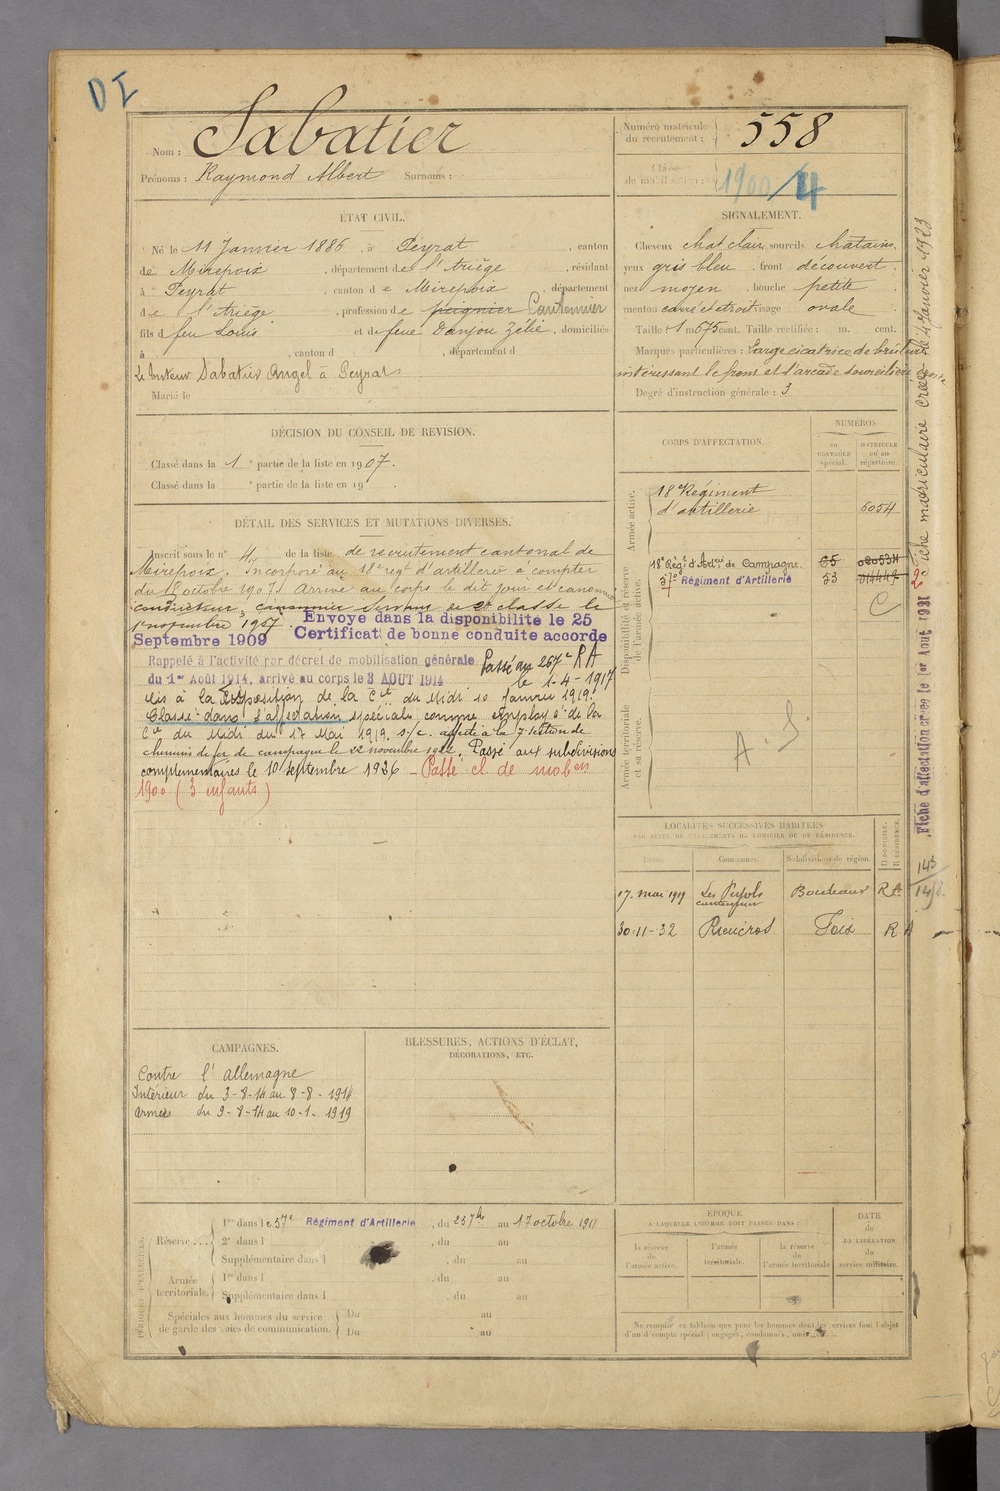 DI
Nom : Sabatier
Prénoms : Raymond Albert Surnoms :
Numéro matricule du recrutement : 558
Classe de mobilisation : 1900/4
ÉTAT CIVIL.
Né le 11 Janvier 1886, à Peyrat, canton
de Mirepoix, département de l'Ariège, résidant
à Peyrat, canton de Mirepoix, département
de l'Ariège, profession de peignier Cantonnier
fils de feu Louis et de feue Danjou Zélie, domiciliés
à , canton d , département d
Le tuteur Sabatier Angel à Peyrat
Marié le
SIGNALEMENT.
Cheveux chat clair sourcils châtains
yeux gris bleu, front découvert
nez moyen, bouche petite
menton carré et droit visage ovale
Taille : 1 m 675 cent. Taille rectifiée : m. cent.
Marques particulières : Large cicatrice de brûlure
intéressant le front et l'arcade sourcilière
Degré d'instruction générale : 3
DÉCISION DU CONSEIL DE REVISION.
Classé dans la 1e partie de la liste en 1907.
Classé dans la e partie de la liste en 19
DÉTAIL DES SERVICES ET MUTATIONS DIVERSES.
Inscrit sous le n° 4 de la liste de recrutement cantonal de
Mirepoix. Incorporé au 18e regt d'artillerie à compter
du 12 octobre 1907. Arrivé au corps le dit jour et canonnier
conducteur, canonnier servant de 2e classe le
1er novembre 1907. Envoyé dans la disponibilité le 25
Septembre 1909 Certificat de bonne conduite accordé
Rappelé à l'activité par décret de mobilisation générale
du 1er Août 1914, arrivé au corps le 3 AOUT 1914
Passé au 267e RA
le 1-4-1917
Mis à la disposition de la Cie du Midi 10 Janvier 1919.
Classé dans l'affectation spéciale comme employé de la
Cie du Midi du 17 Mai 1919. s/c. affecté à la 7e section de
chemins de fer de campagne le 22 novembre 1922. Passé aux subdivisions
complémentaires le 10 septembre 1926 - Passé cl. de mob en
1900 (3 enfants)
CORPS D'AFFECTATION.
NUMÉROS
au contrôle spécial.
matricule ou au répertoire.
Armée active.
18e Régiment
d'artillerie 6054
Disponibilité et réserve de l'armée active.
18e Régt d'Artrie de Campagne. 65 02053H
57e Régiment d'Artillerie 73 014447
C
Armée territoriale et sa réserve.
A. S
2e Fiche matriculaire créée le 4 Janvier 1923
Fiche d'affectation créée le 1er Aout 1931
LOCALITÉS SUCCESSIVES HABITÉES
PAR SUITE DE CHANGEMENTS DE DOMICILE OU DE RÉSIDENCE.
Dates. Communes. Subdivisions de région. D DOMICILE. R RÉSIDENCE.
17 mai 1919 Les Pujols cantonnier Bordeaux RA
30-11-32 Rieucros Foix R A
143
14/8.
CAMPAGNES.
Contre l'Allemagne
Intérieur du 3-8-14 au 8-8-1914
Armées du 9-8-14 au 10-1-1919
BLESSURES, ACTIONS D'ÉCLAT,
DÉCORATIONS, ETC.
PÉRIODES D'EXERCICES.
Réserve... 1re dans le 57e Régiment d'Artillerie, du 25 7bre au 17 octobre 1911
2e dans l , du au
Supplémentaire dans l , du au
Armée territoriale. 1re dans l , du au
Supplémentaire dans l , du au
Spéciales aux hommes du service
de garde des voies de communication. Du au
Du au
ÉPOQUE
A LAQUELLE L'HOMME DOIT PASSER DANS :
la réserve de l'armée active.
l'armée territoriale.
la réserve de l'armée territoriale
DATE de LA LIBÉRATION du service militaire.
Ne remplir ce tableau que pour les hommes dont les services font l'objet
d'un décompte spécial (engagés, condamnés, omis, etc.).